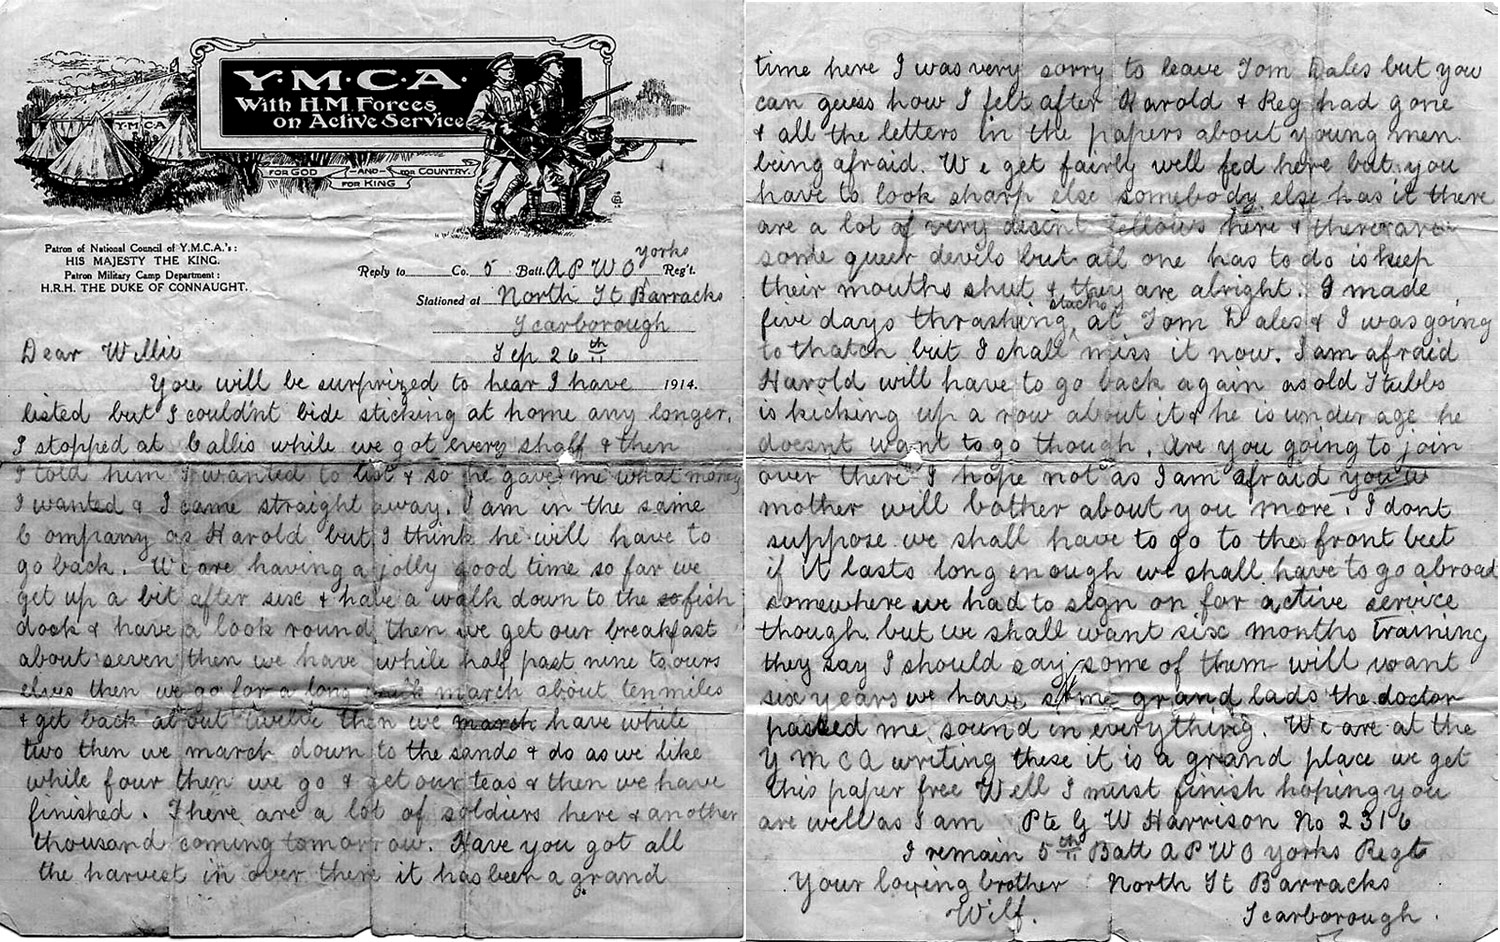 Y·M·C·A·
With H.M. Forces
on Active Service
YMCA
FOR GOD —AND— FOR COUNTRY.
FOR KING
Patron of National Council of Y.M.C.A.'s:
HIS MAJESTY THE KING.
Patron Military Camp Department:
H.R.H. THE DUKE OF CONNAUGHT.
Reply to Co. 5 Batt. A P W O Yorks Reg't.
Stationed at North St Barracks
Scarborough
Sep 26th
1914.
Dear Willie
You will be surprized to hear I have
listed but I couldn't bide sticking at home any longer.
I stopped at Callis while we got every shaff & then
I told him I wanted to list & so he gave me what money
I wanted & I came straight away. I am in the same
Company as Harold but I think he will have to
go back. We are having a jolly good time so far we
get up a bit after six & have a walk down to the fish
dock & have a look round then we get our breakfast
about seven then we have while half past nine to ours
elves then we go for a long march about ten miles
& get back about twelve then we march have while
two then we march down to the sands & do as we like
while four then we go & get our teas & then we have
finished. There are a lot of soldiers here & another
thousand coming tomorrow. Have you got all
the harvest in over there it has been a grand
time here I was very sorry to leave Tom Dales but you
can guess how I felt after Harold & Reg had gone
& all the letters in the papers about young men
being afraid. We get fairly well fed here but you
have to look sharp else somebody else has it there
are a lot of very desent fellows here & there are
some queer devils but all one has to do is keep
their mouths shut & they are alright. I made
five days thrashing stacks at Tom Dales & I was going
to thatch but I shall miss it now. I am afraid
Harold will have to go back again as old Stubbs
is kicking up a row about it & he is under age he
doesnt want to go though. Are you going to join
over there I hope not as I am afraid
mother will bother about you more. I dont
suppose we shall have to go to the front beet
if it lasts long enough we shall have to go abroad
somewhere we had to sign on for active service
though. but we shall want six months training
they say I should say some of them will want
six years we have some grand lads the doctor
passed me sound in everything. We are at the
Y M C A writing these it is a grand place we get
this paper free Well I must finish hoping you
are well as I am Pte G W Harrison No 2316
I remain 5th Batt A P W O Yorks Regt
Your loving brother North St Barracks
Wilf. Scarborough.